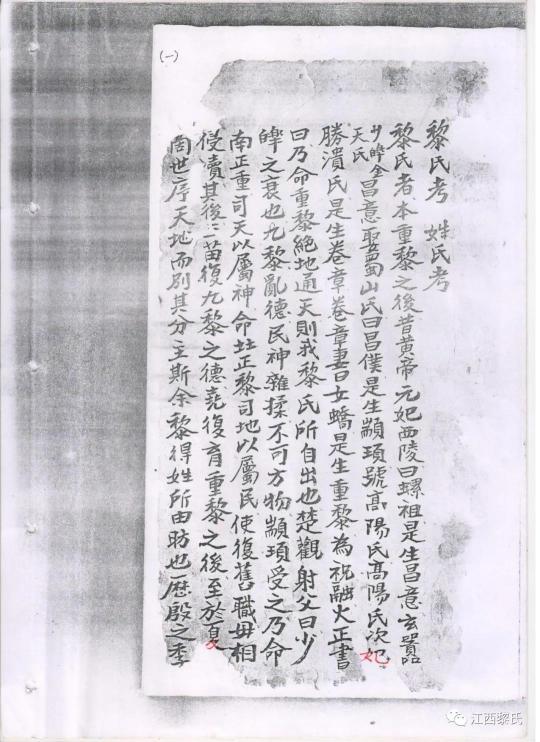 (一)
黎氏考 姓氏考
黎氏者本重黎之後昔黃帝元妃西陵曰螺祖是生昌意玄囂
少皞金天氏昌意娶蜀山氏曰昌僕是生顓頊號高陽氏高陽氏次妃
勝潰氏是生卷章卷章妻曰女蟜是生重黎為祝融火正書
曰乃命重黎絕地通天則我黎氏所自出也楚觀射父曰少
皞之衰也九黎亂德民神雜揉不可方物顓頊受之乃命
南正重司天以屬神命正黎司地以屬民使復舊職毋相
侵瀆其後三苗復九黎之德堯復育重黎之後至於夏
商世序天地而別其分主斯余黎得姓所由昉也歷殷之季
江西黎氏